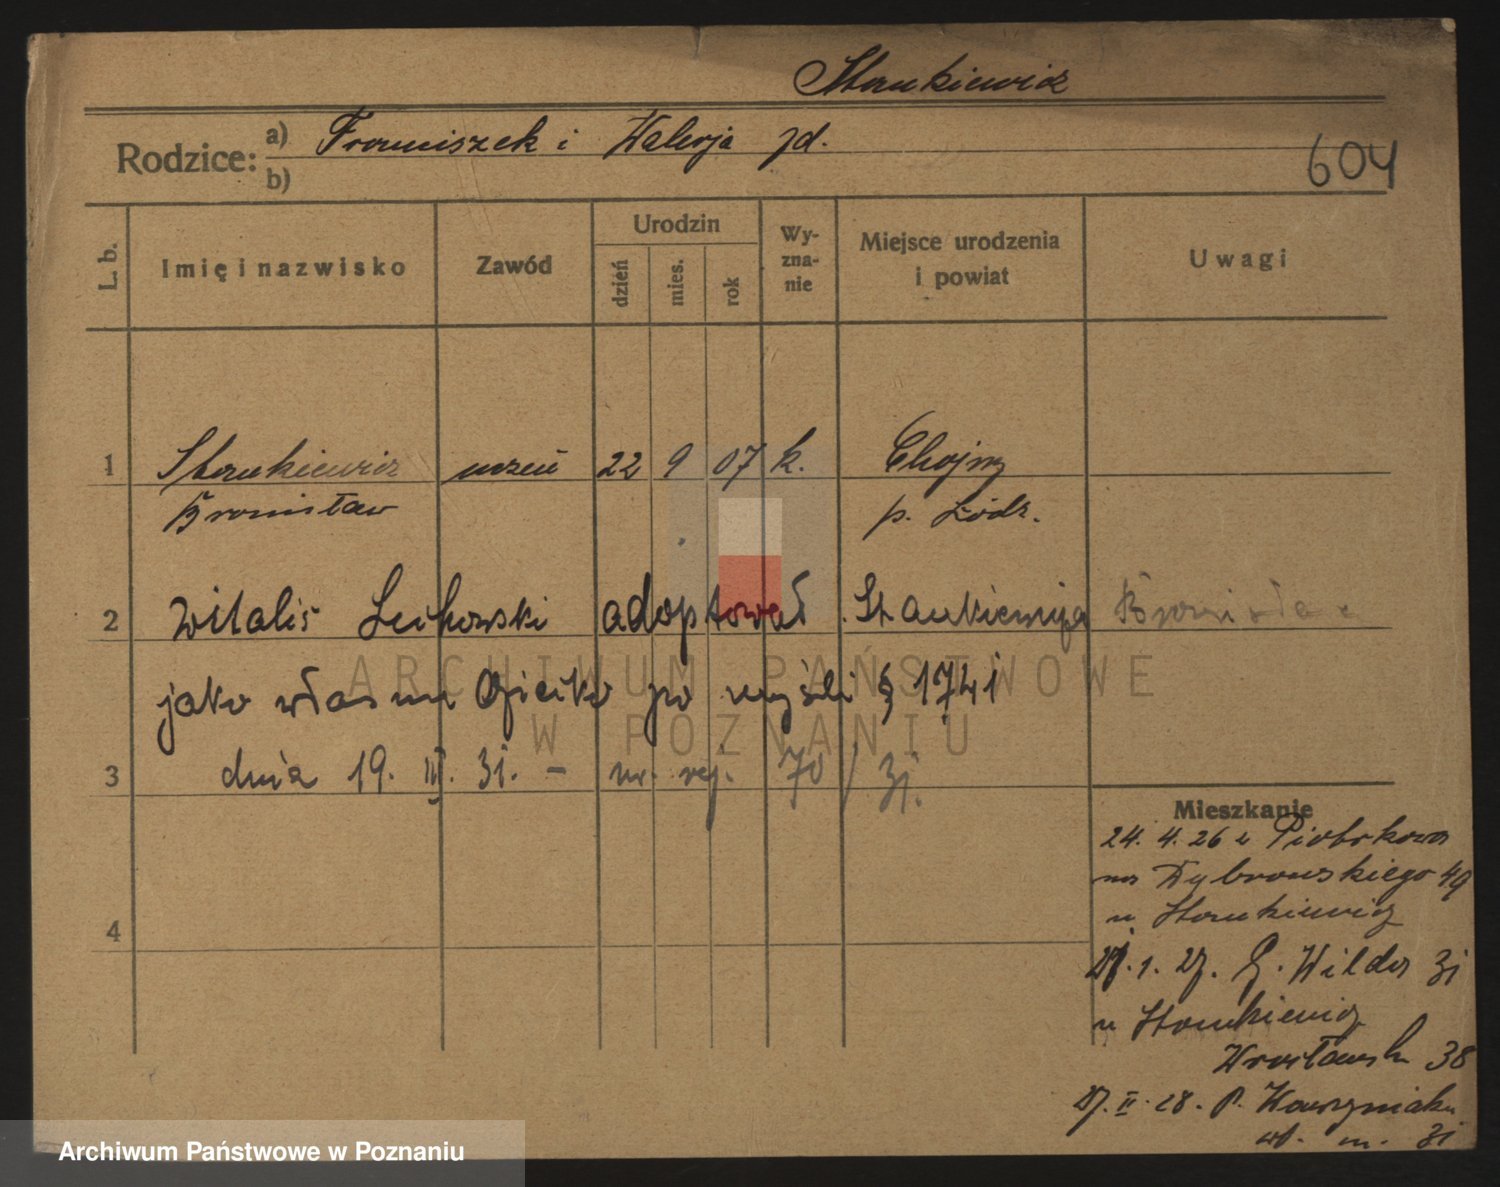 Stankiewicz
Rodzice: a) Franciszek i Walerja jd.
b)
604
L. b.
Imię i nazwisko
Zawód
Urodzin
dzień
mies.
rok
Wy-
zna-
nie
Miejsce urodzenia
i powiat
Uwagi
1 Stankiewicz uczeń 22 9 07 k. Chojny
Bronisław p. Łódź.
2 Witalis adoptował Stankiewicza Bronisława
jako własne po myśli § 1741
3 dnia 19. III. 31. - nr. rej. 70/31.
4
Mieszkanie
24. 4. 26 z Piotrkowa
na Dąbrowskiego 49
u Stankiewicz
27. 1. 27. G. Wilda 31
u Stankiewicz
Wrocławska 38
27. II. 28. P. m. 31
ARCHIWUM PAŃSTWOWE
W POZNANIU
Archiwum Państwowe w Poznaniu